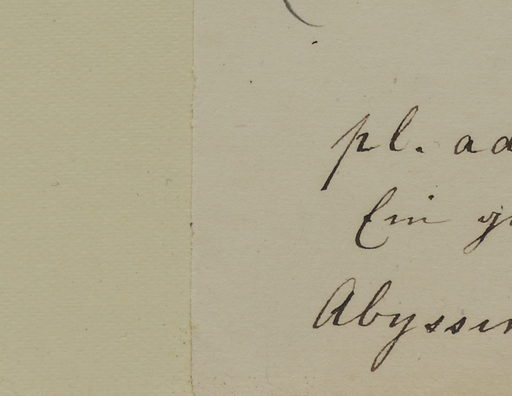 pl. ad
Ein
Abyssin